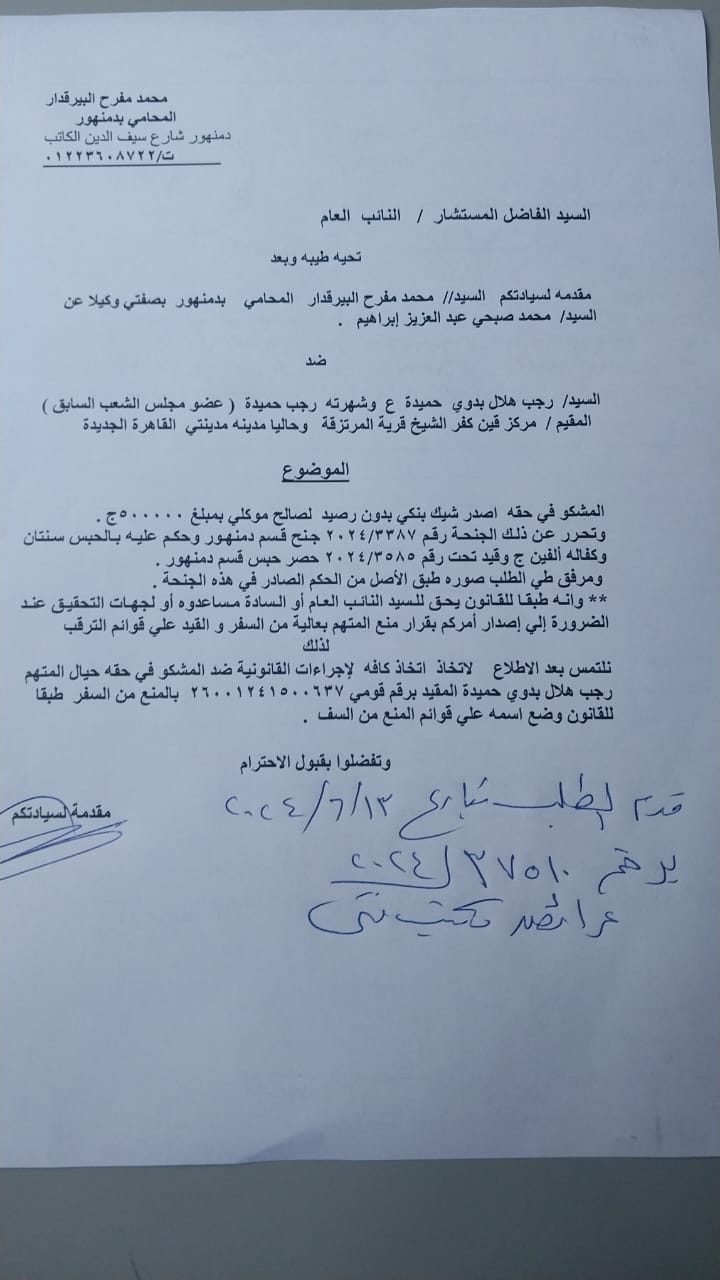 محمد مفرح البيرقدار
المحامي بدمنهور
دمنهور شارع سيف الدين الكاتب
ت/٠١٢٢٣٦٠٨٧٢٢
السيد الفاضل المستشار / النائب العام
تحيه طيبه وبعد
مقدمه لسيادتكم السيد// محمد مفرح البيرقدار المحامي بدمنهور بصفتي وكيلا عن
السيد/ محمد صبحي عبد العزيز إبراهيم .
ضد
السيد/ رجب هلال بدوي حميدة ع وشهرته رجب حميدة ( عضو مجلس الشعب السابق )
المقيم / مركز قين كفر الشيخ قرية المرتزقة وحاليا مدينه مدينتي القاهرة الجديدة
الموضوع
المشكو في حقه اصدر شيك بنكي بدون رصيد لصالح موكلي بمبلغ ٥٠٠٠٠٠ج .
وتحرر عن ذلك الجنحة رقم ٢٠٢٤/٣٣٨٧ جنح قسم دمنهور وحكم عليه بالحبس سنتان
وكفاله ألفين ج وقيد تحت رقم ٢٠٢٤/٣٥٨٥ حصر حبس قسم دمنهور .
ومرفق طي الطلب صوره طبق الأصل من الحكم الصادر في هذه الجنحة .
** وانه طبقا للقانون يحق للسيد النائب العام أو السادة مساعدوه أو لجهات التحقيق عند
الضرورة إلي إصدار أمركم بقرار منع المتهم بعالية من السفر و القيد علي قوائم الترقب
لذلك
نلتمس بعد الاطلاع لاتخاذ اتخاذ كافه لإجراءات القانونية ضد المشكو في حقه حيال المتهم
رجب هلال بدوي حميدة المقيد برقم قومي ٢٦٠٠١٢٤١٥٠٠٦٣٧ بالمنع من السفر طبقا
للقانون وضع اسمه علي قوائم المنع من السف .
وتفضلوا بقبول الاحترام
مقدمة لسيادتكم
قدم الطلب بتاريخ ٢٠٢٤/٦/١٣
برقم ٣٧٥١٠ / ٢٠٢٤
عرائض مكتب فنى